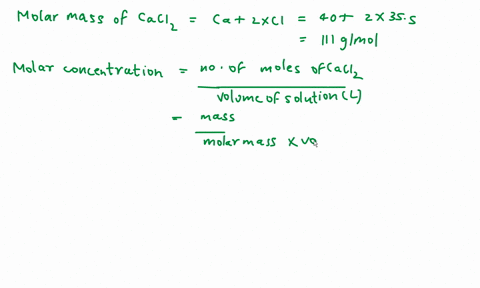 Molar mass of CaCl2 = Ca + 2xCl = 40 + 2 x 35.5
= 111 g/mol
Molar concentration = no. of moles of CaCl2
volume of solution (L)
= mass
molar mass x vo